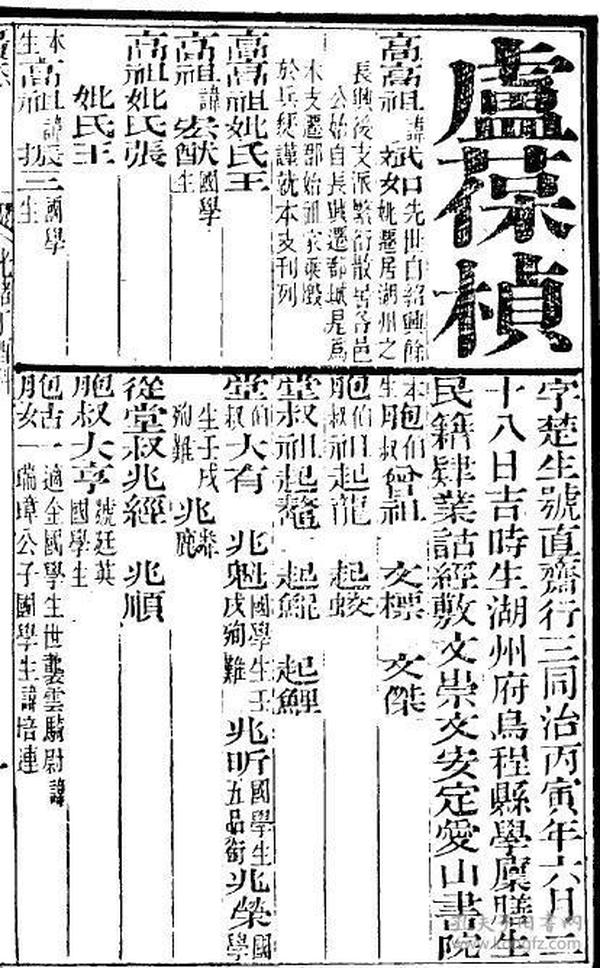 盧葆楨
字楚生號直齋行三同治丙寅年六月二
十八日吉時生湖州府烏程縣學廩膳生
民籍肄業詁經敷文崇文安定愛山書院
高高祖諱斌如先世自紹興餘
姚遷居湖州之
長興後支派繁衍散居各邑
公始自長興遷郡城是爲
本支遷郡始祖家乘燬
於兵燹謹就本支刊列
高高祖妣氏王
高祖諱宏猷國學生
高祖妣氏張
妣氏王
本生高祖諱振三國學生
胞伯曾祖 文標 文傑
胞伯祖起龍 起蛟
堂叔祖起鼇 起鯤 起鯉
堂伯叔大有 兆魁國學生壬戌殉難 兆昕國學生五品銜 兆榮國學
生壬戌殉難 兆麟 兆鹿
從堂叔兆經 兆順
胞叔大亨號廷英國學生
胞姑一適金國學生世襲雲騎尉諱
瑞璋公子國學生諱培連